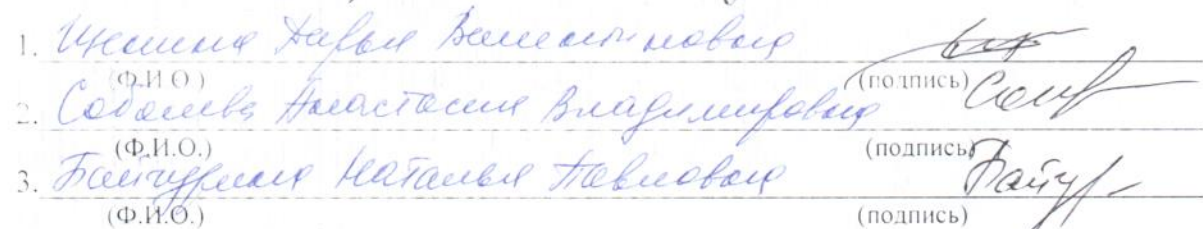 1. Дарья Валентиновна
(Ф.И.О.) (подпись)
2. Соболева Анастасия Владимировна
(Ф.И.О.) (подпись)
3. Байчурина Наталья Павловна
(Ф.И.О.) (подпись)